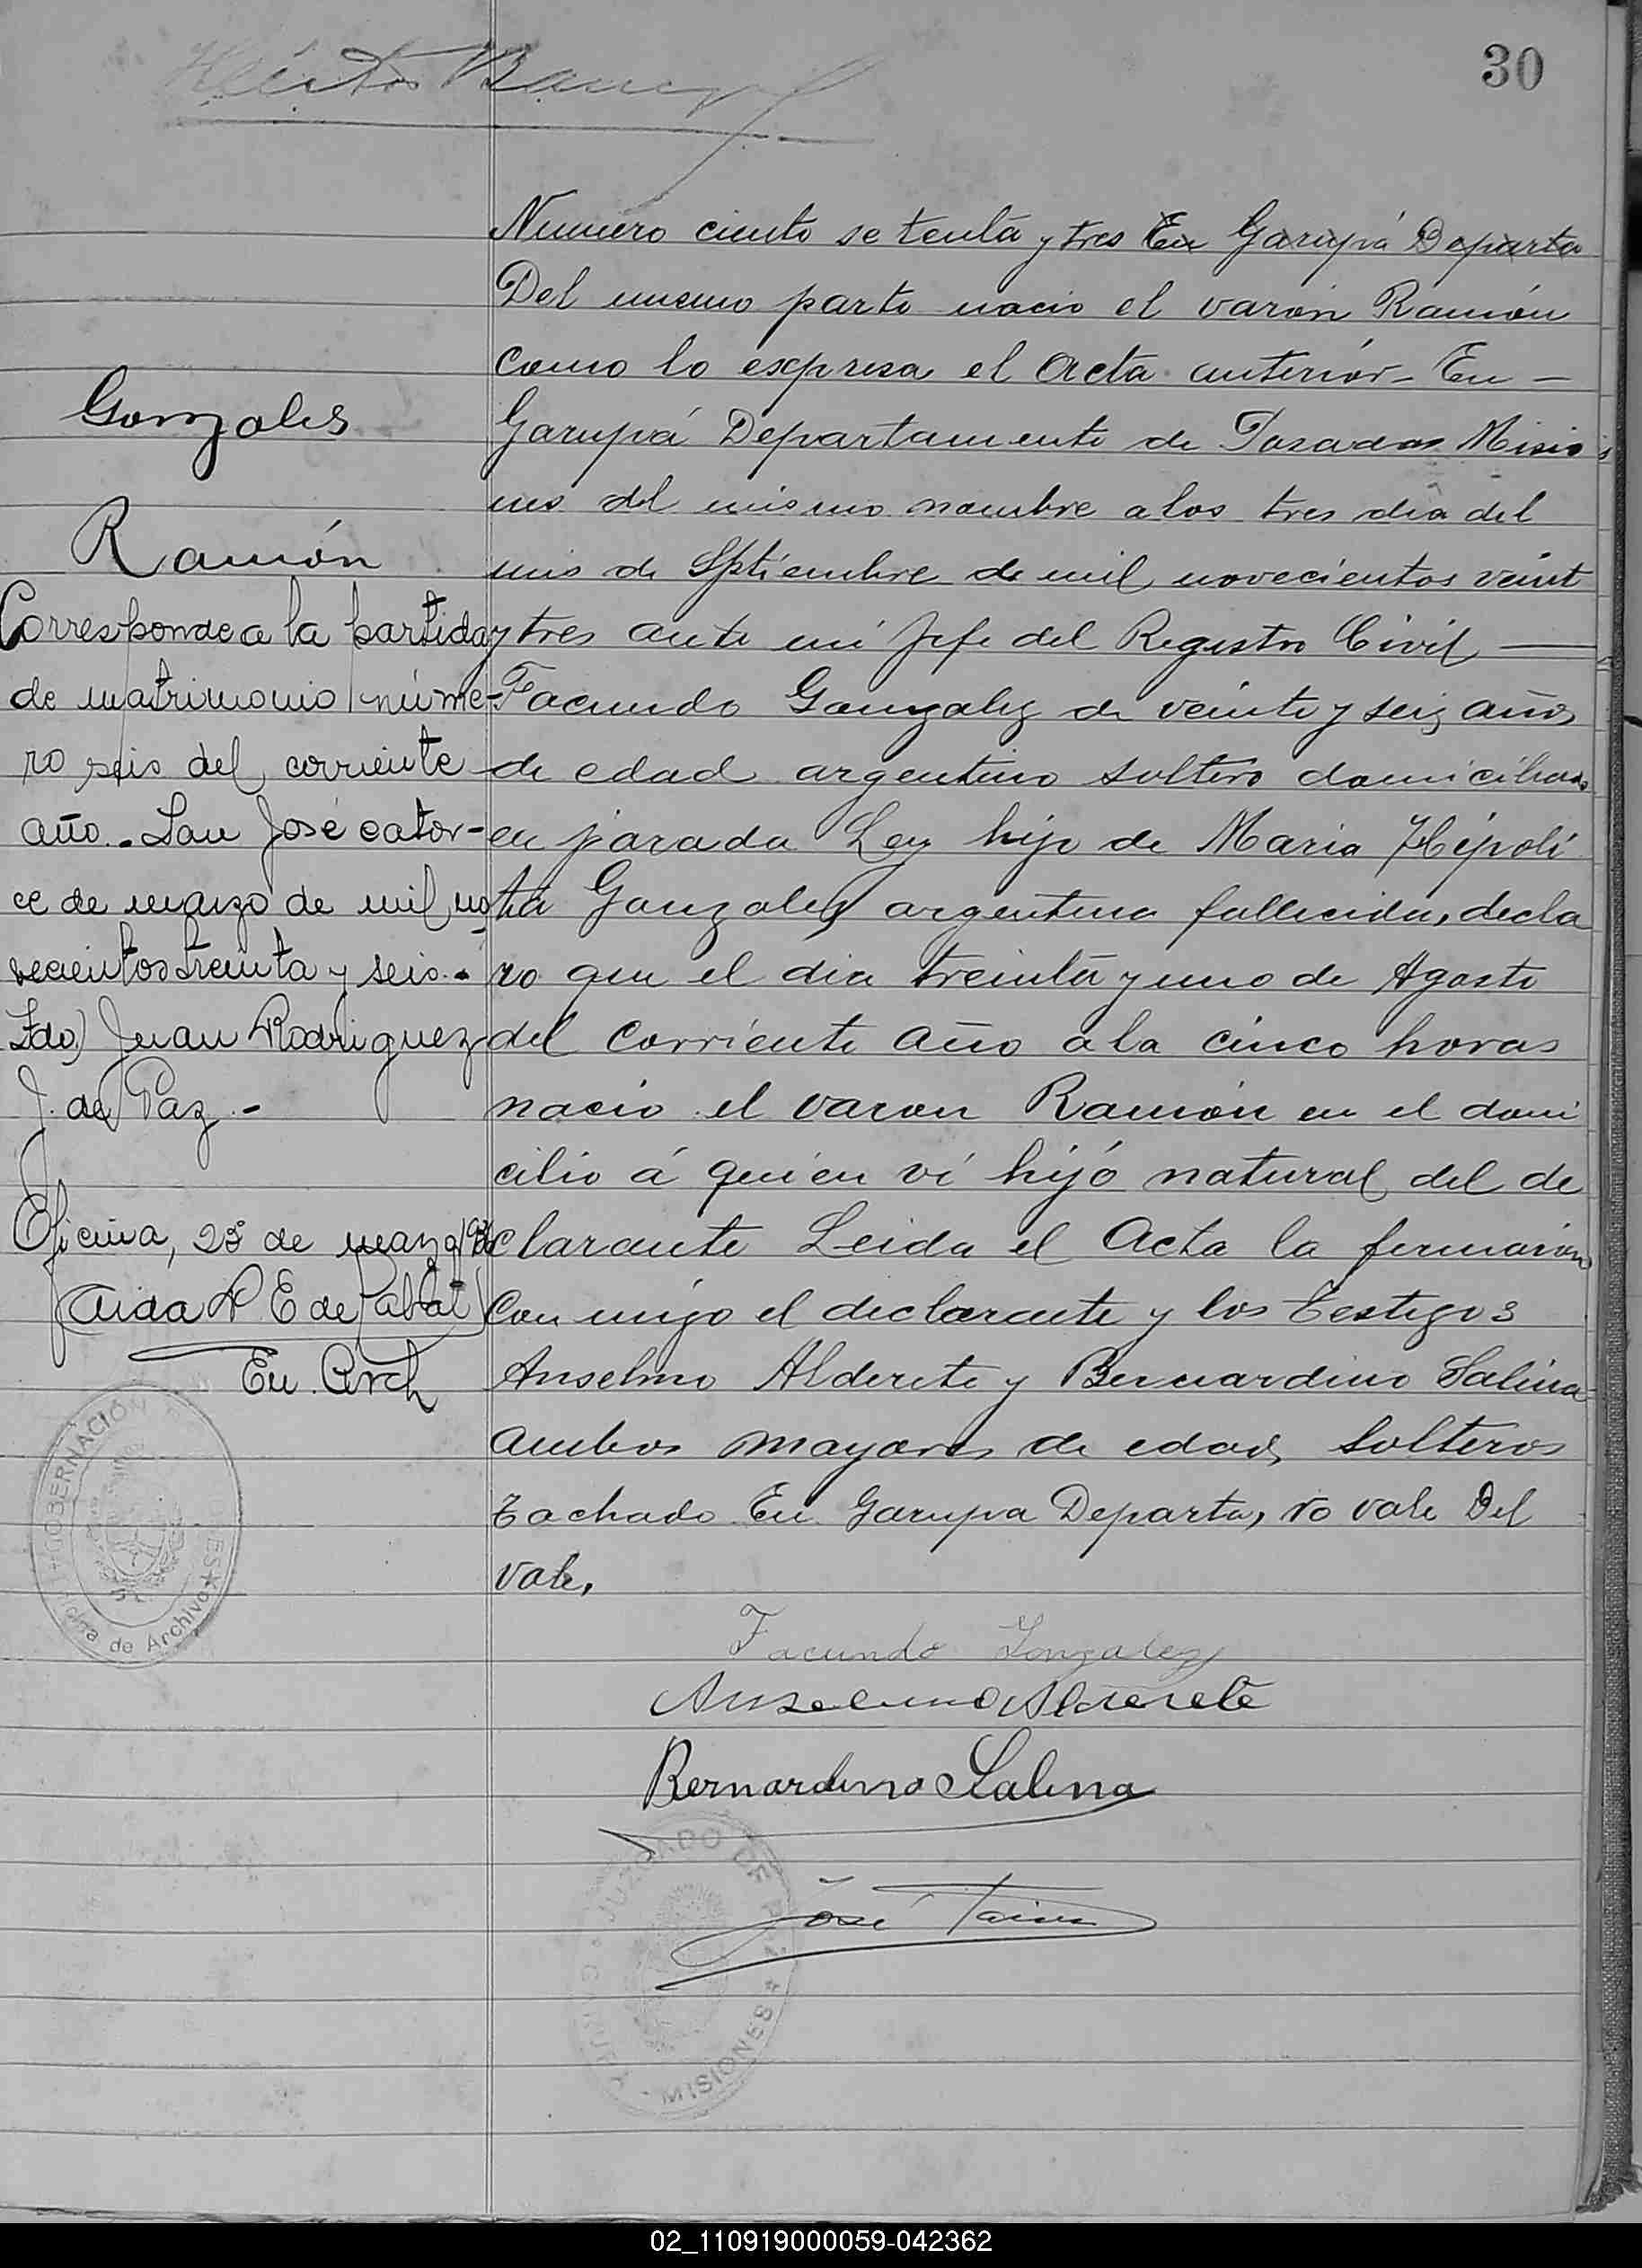 30
Numero ciento setenta y tres En Garupá Departa
Del mismo parto nacio el varón Ramón
como lo expresa el Acta anterior - En -
Garupá Departamento de Posadas Misio
nes del mismo nombre a los tres dia del
mis de Sptiembre de mil novecientos veint
y tres ante mi Jefe del Registro Civil —
Facundo Gonzalez de veinte y seis años
de edad argentino soltero domiciliado
en parada Ley hijo de Maria Hipoli
ta Gonzalez argentina fallecida, decla
ro que el dia treinta y uno de Agosto
del Corriente año a la cinco horas
nacio el varon Ramón en el domi
cilio á quien ví hijó natural del de
clarante Leida el Acta la firmarón
Con migo el declarante y los testigos
Anselmo Alderete y Bernardino Salina
ambos mayores de edad, Solteros
tachado En Garupa Departa, no vale Del
vale,
Facundo Gonzalez
Anselmo Alderete
Bernardino Salina
José
JUZGADO DE PAZ
MISIONES
Gonzales
Ramón
Corresponde a la partida
de matrimonio núme-
ro seis del corriente
año. San José cator-
ce de marzo de mil no
vecientos treinta y seis.
Fdo) Juan Rodriguez
J. de Paz -
Oficina, 23 de marzo
Aida
En. Arch
GOBERNACIÓN
de Archivo
02_110919000059-042362